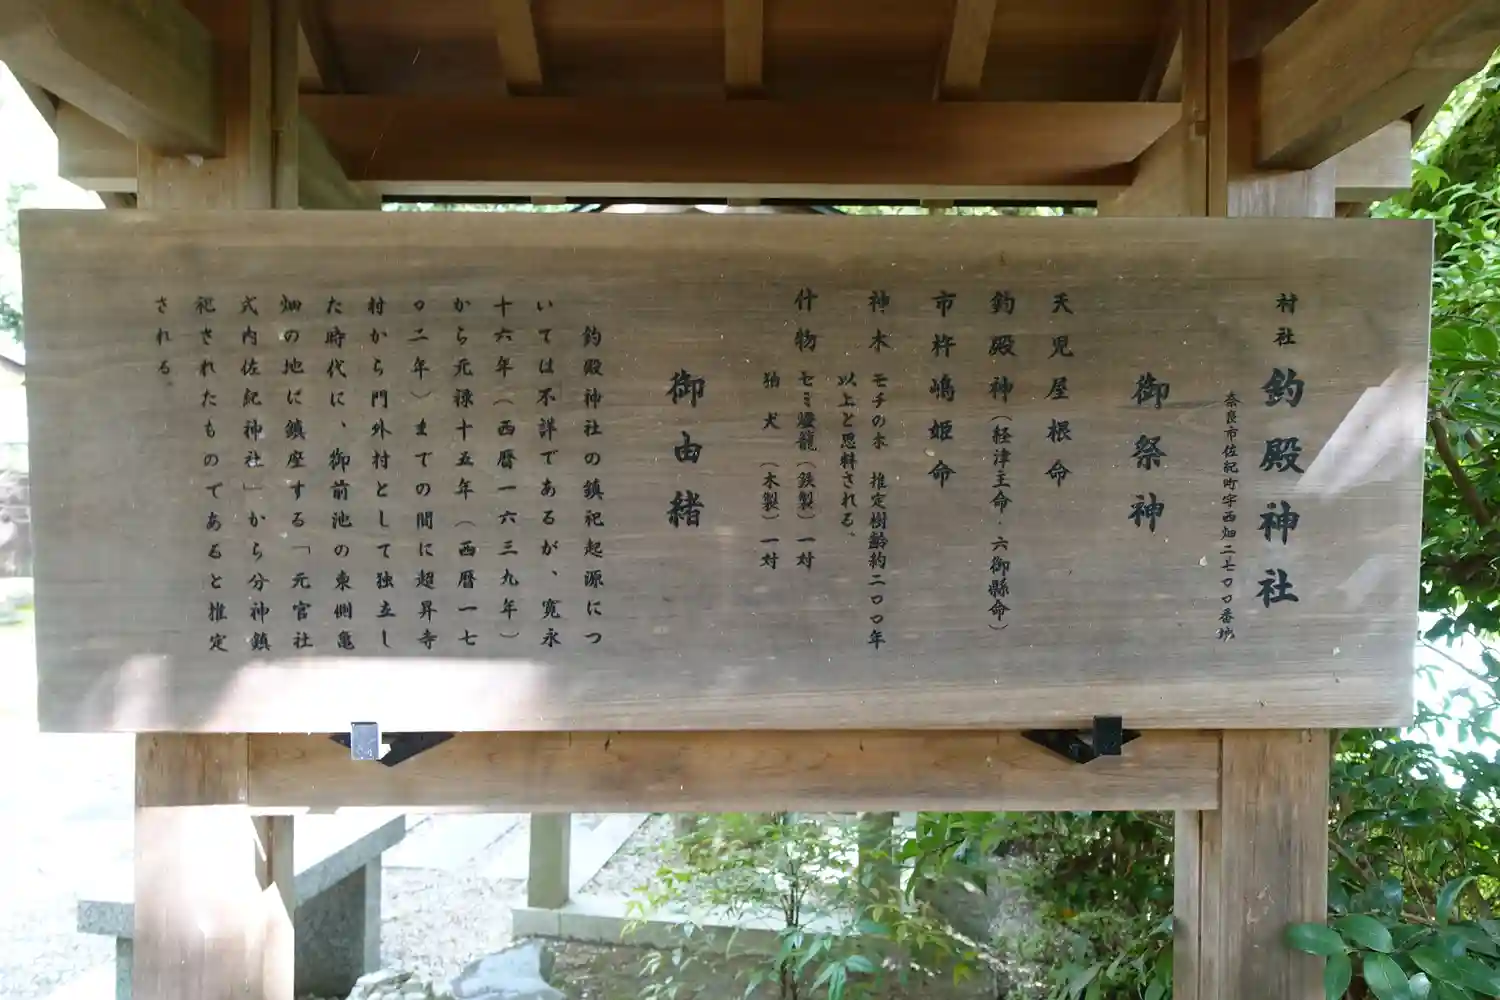 村社 釣殿神社
奈良市佐紀町字西畑二七〇〇番地
御祭神
天児屋根命
釣殿神（経津主命・六御縣命）
市杵嶋姫命
神木 モチの木 推定樹齢約二〇〇年
以上と思料される、
什物 七ミ燈籠（鉄製）一対
狛犬（木製）一対
御由緒
釣殿神社の鎮祀起源につ
いては不詳であるが、寛永
十六年（西暦一六三九年）
から元禄十五年（西暦一七
〇二年）までの間に超昇寺
村から門外村として独立し
た時代に、御前池の東側亀
畑の地に鎮座する「元官社
式内佐紀神社」から分神鎮
祀されたものであると推定
される。